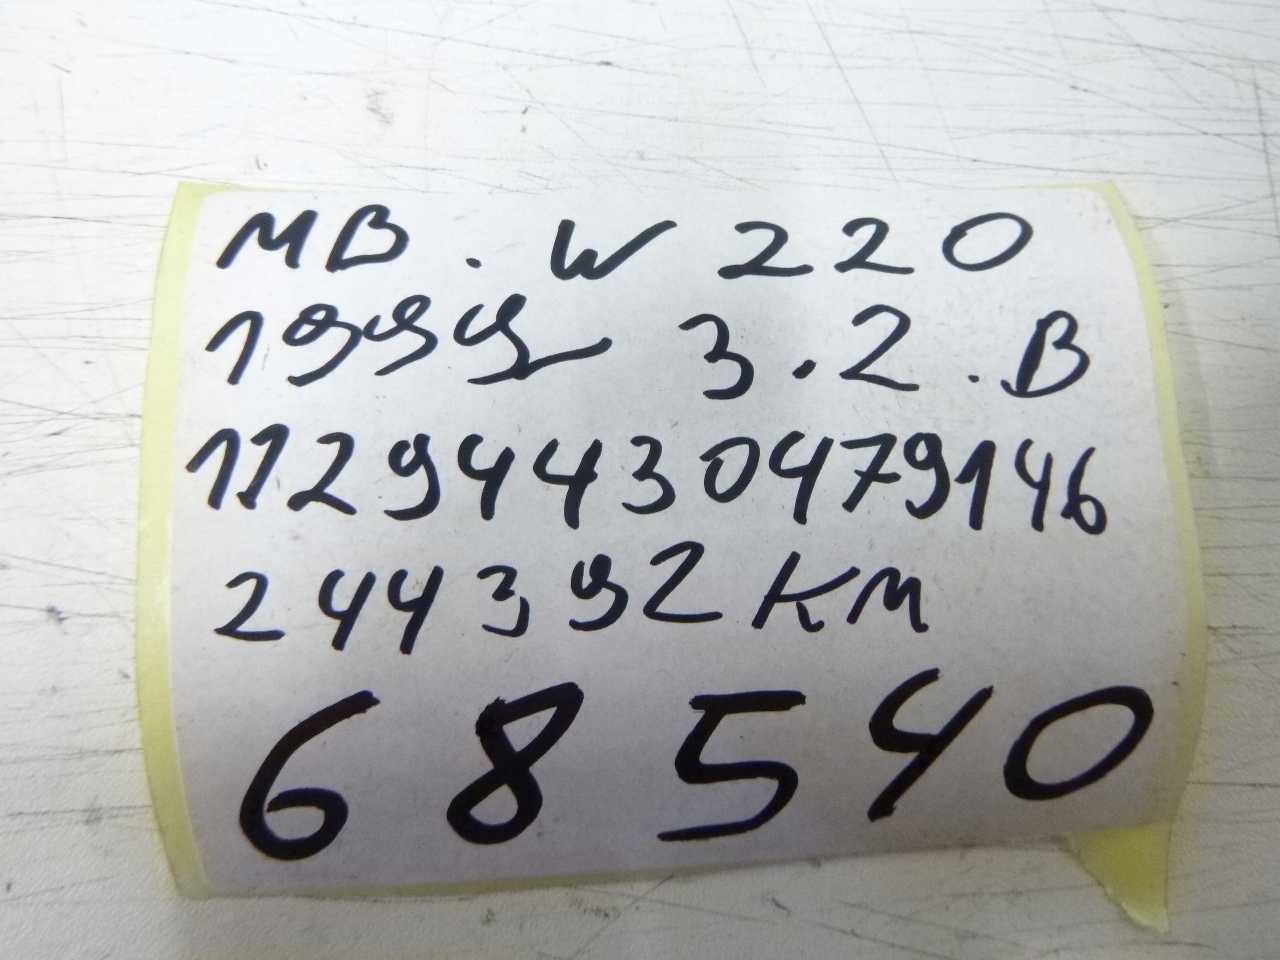 MB. W 220
1999 3.2.B
11294430479146
244392 KM
68540